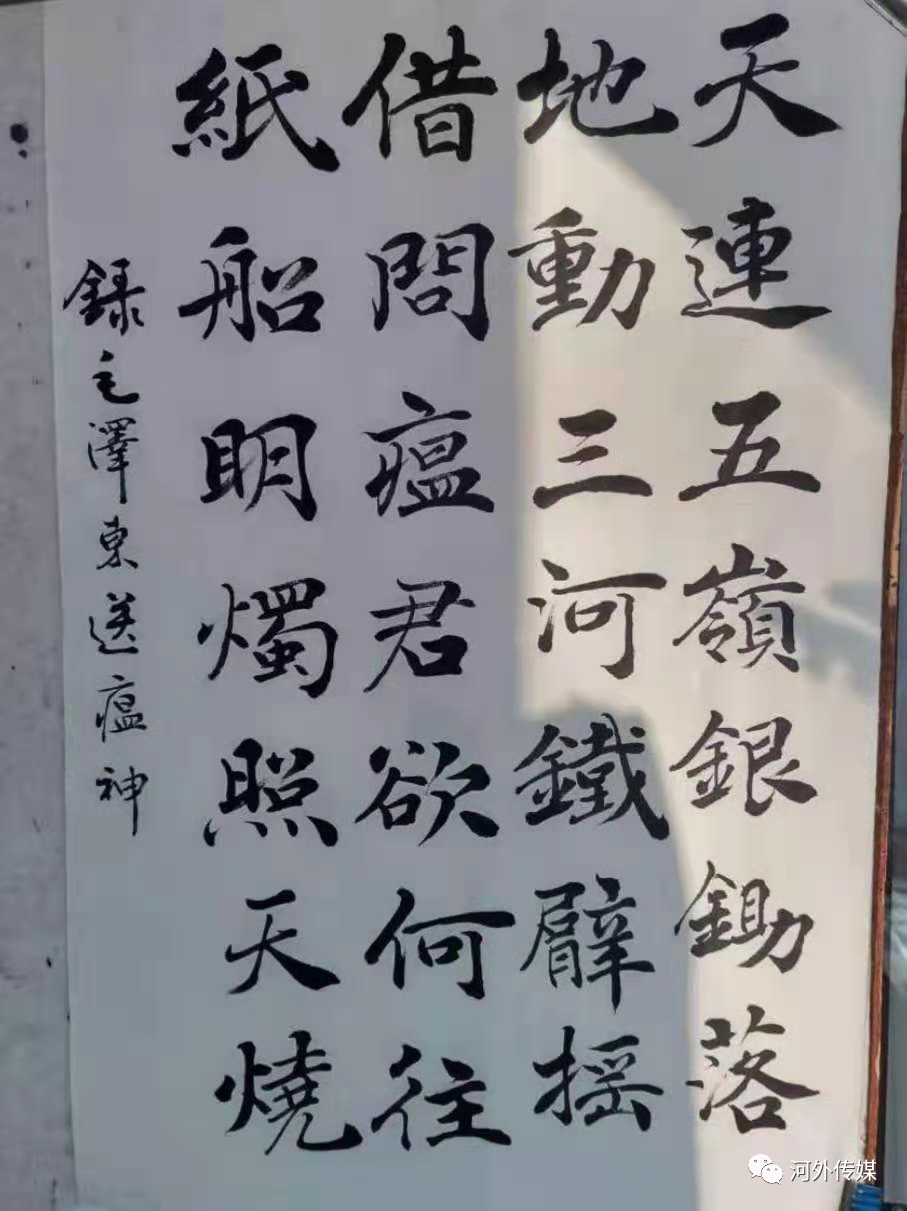 天連五嶺銀鋤落
地動三河鐵臂摇
借問瘟君欲何往
紙船明燭照天燒
録毛澤東送瘟神
河外传媒